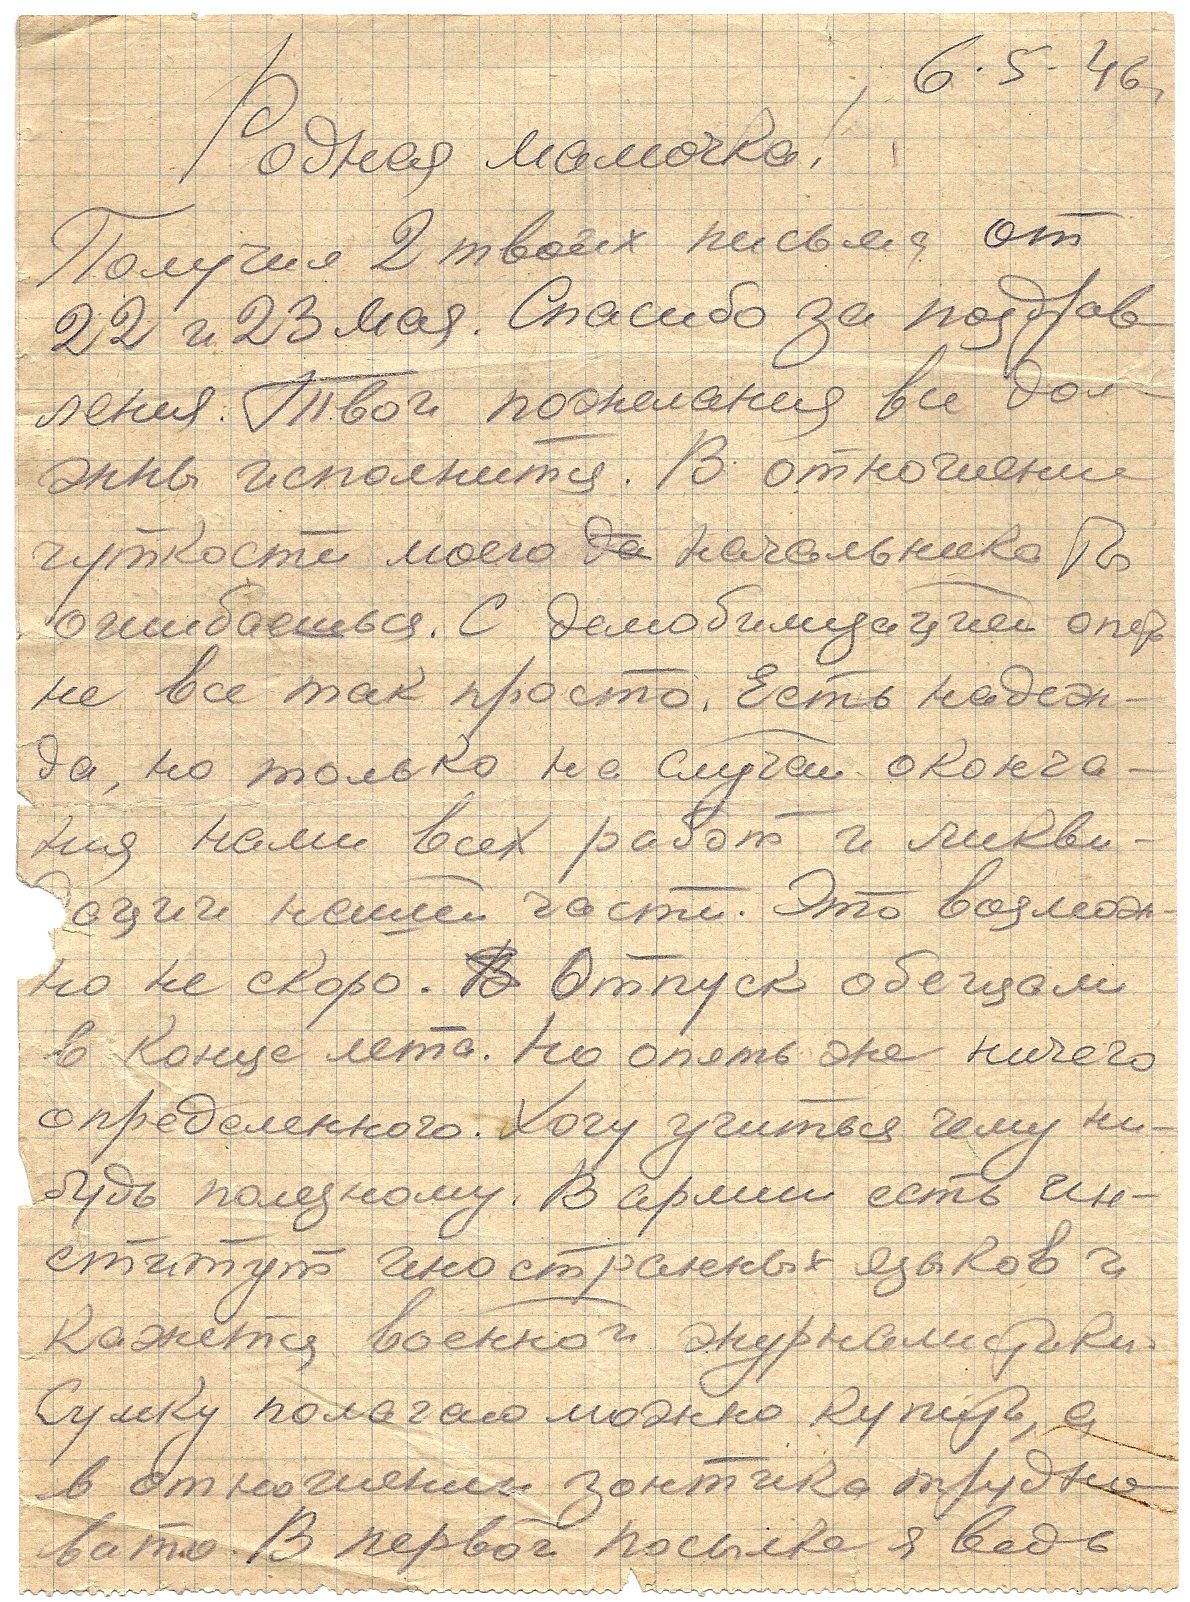 6.5.46
Родная мамочка!
Получил 2 твоих письма от
22 и 23 мая. Спасибо за поздрав
ления. Твои пожелания все дол-
жны исполнится. В отношении
чуткости моего да начальника Ты
ошибаешься. С демобилизацией опять
не все так просто. Есть надеж-
да, но только на случай оконча-
ния нами всех работ и ликви-
дации нашей части. Это возмож-
но не скоро. В Отпуск обещали
в конце лета. Но опять же ничего
определенного. Хочу учиться чему ни-
будь полезному. В армии есть ин-
ститут иностранных языков и
кажется военной журналистики.
Сумку полагаю можно купить, а
в отношении зонтика трудно
вато. В первой посылке я ведь